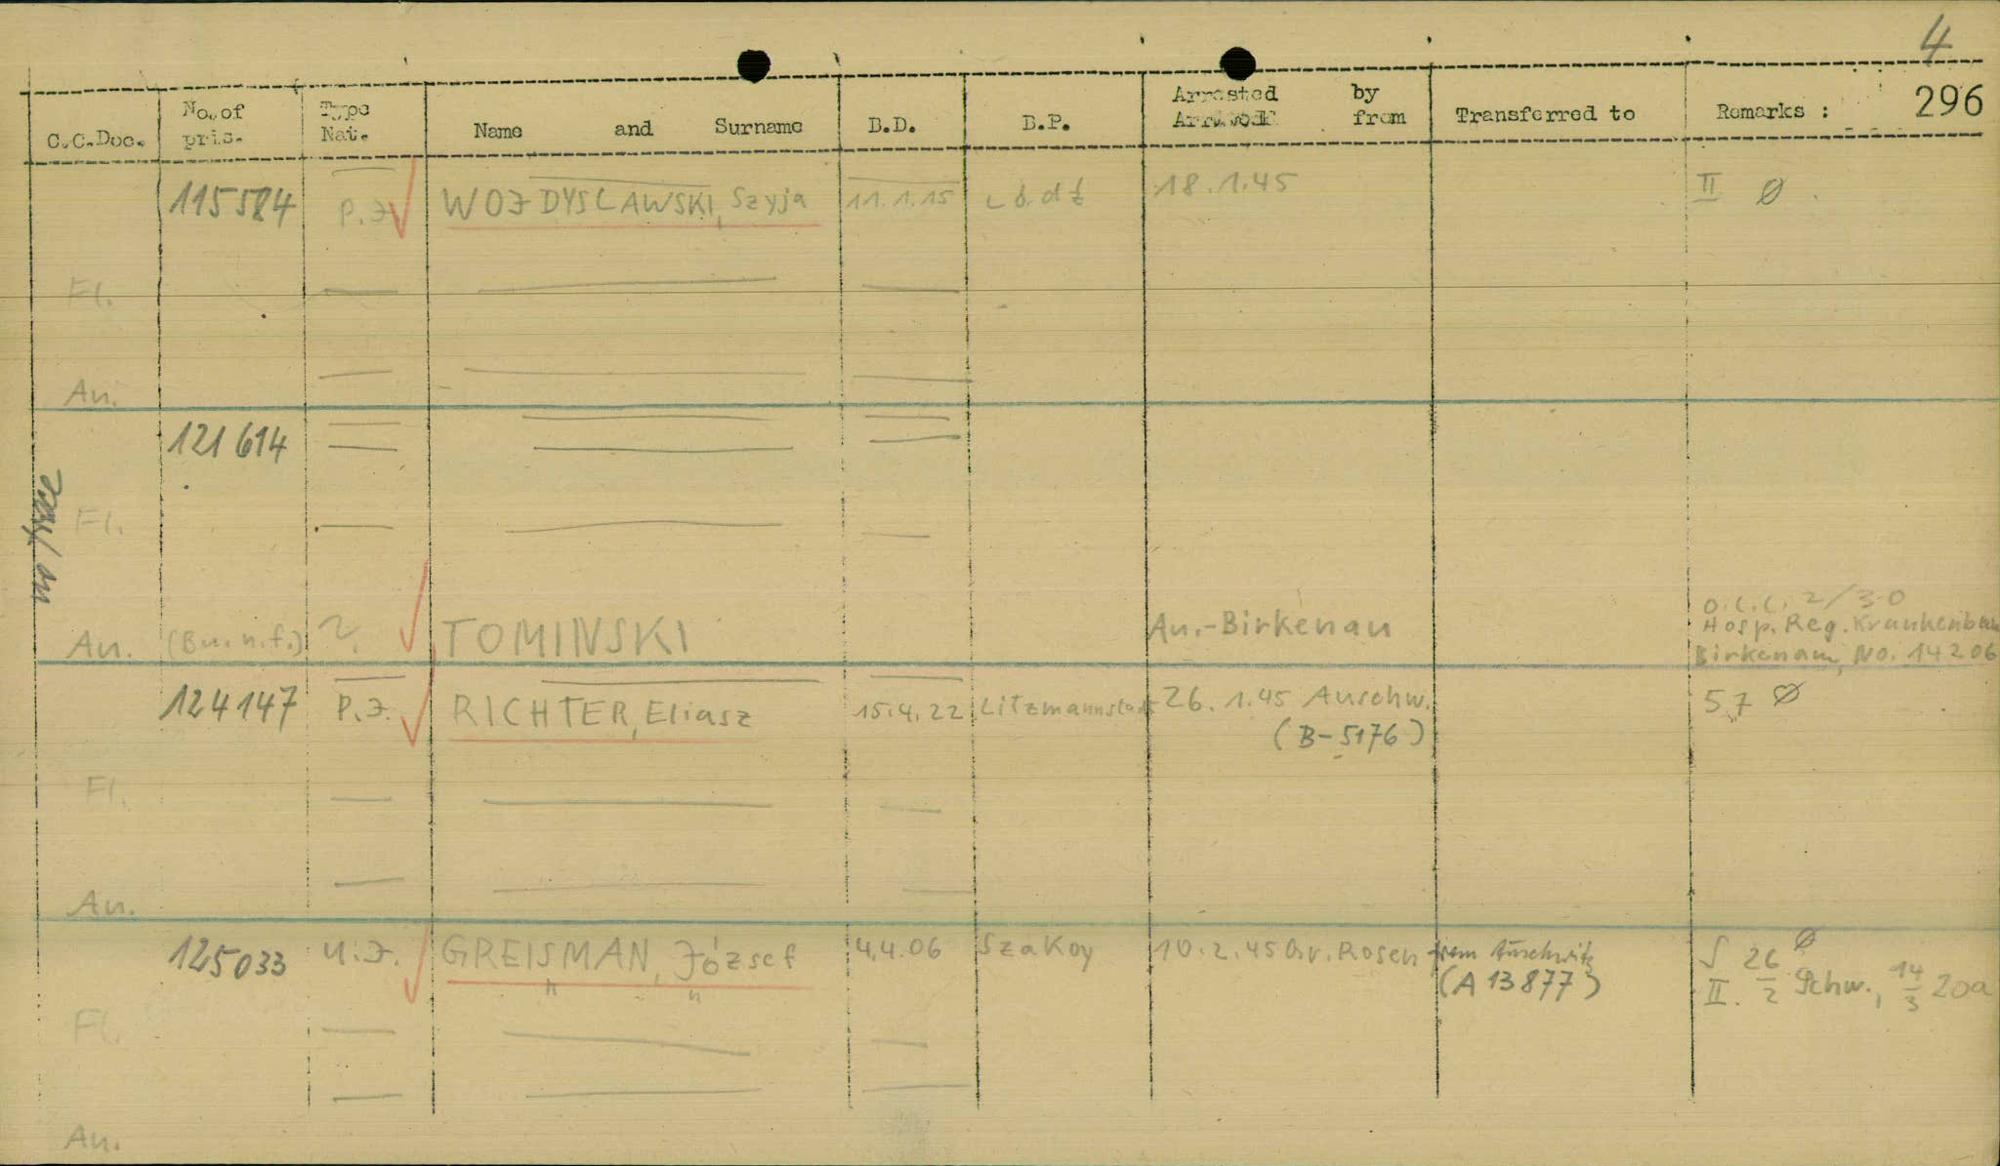 4
296
C.C.Doc. No.of pris. Type Nat. Name and Surname B.D. B.P. Arrested by from Transferred to Remarks :
115584 P.J. WOJDYSLAWSKI, Szyja 11.1.15 Lódź 18.1.45 II Ø
Fl.
An.
121614
Fl.
An. (Bu.n.f.) ? TOMINSKI An.-Birkenau O.C.C. 2/30
Hosp. Reg. Krankenbau
Birkenau, No. 14206
124147 P.J. RICHTER, Eliasz 15.4.22 Litzmannstadt 26.1.45 Auschw. 57 Ø
(B-5176)
Fl.
An.
125033 U.J. GREISMAN, József 4.4.06 Szakoy 10.2.45 Gr. Rosen from Auschwitz
(A 13877)
II. 26/2 Schw., 14/3 20a
Fl.
An.